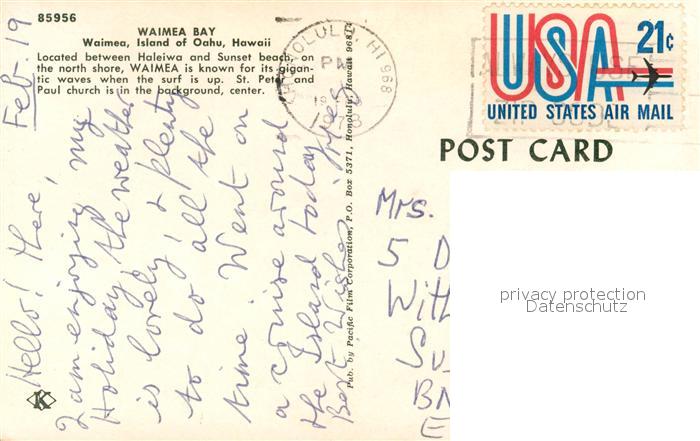 85956
WAIMEA BAY
Waimea, Island of Oahu, Hawaii
Located between Haleiwa and Sunset beach, on
the north shore, WAIMEA is known for its gigan-
tic waves when the surf is up. St. Peter and
Paul church is in the background, center.
Feb. 19
Hello! there,
I am enjoying my
Holiday, the weather
is lovely, & plenty
to do all the
time. Went on
a cruise around
the Island today
Best Wishes
K
Pub. by Pacific Film Corporation, P.O. Box 5371, Honolulu, Hawaii 96814
HONOLULU, HI 968
PM
USA 21c
UNITED STATES AIR MAIL
POST CARD
Mrs.
5 D
With
Su
E
privacy protection
Datenschutz